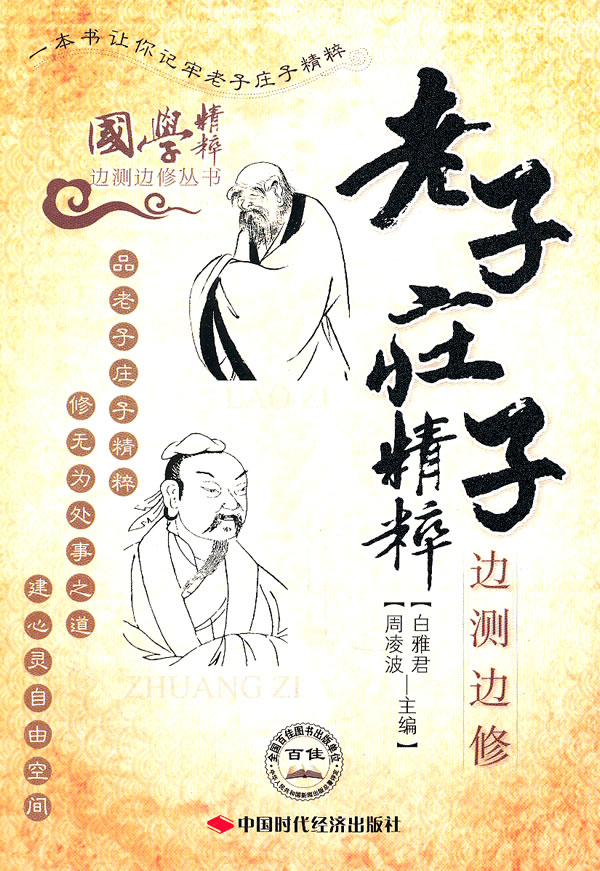 一本书让你记牢老子庄子精粹
國學精粹
边测边修丛书
老子庄子精粹
边测边修
【白雅君
周凌波—主编】
品老子庄子精粹
修无为处事之道
建心灵自由空间
LAO ZI
ZHUANG ZI
全国百佳图书出版单位
百佳
中国时代经济出版社